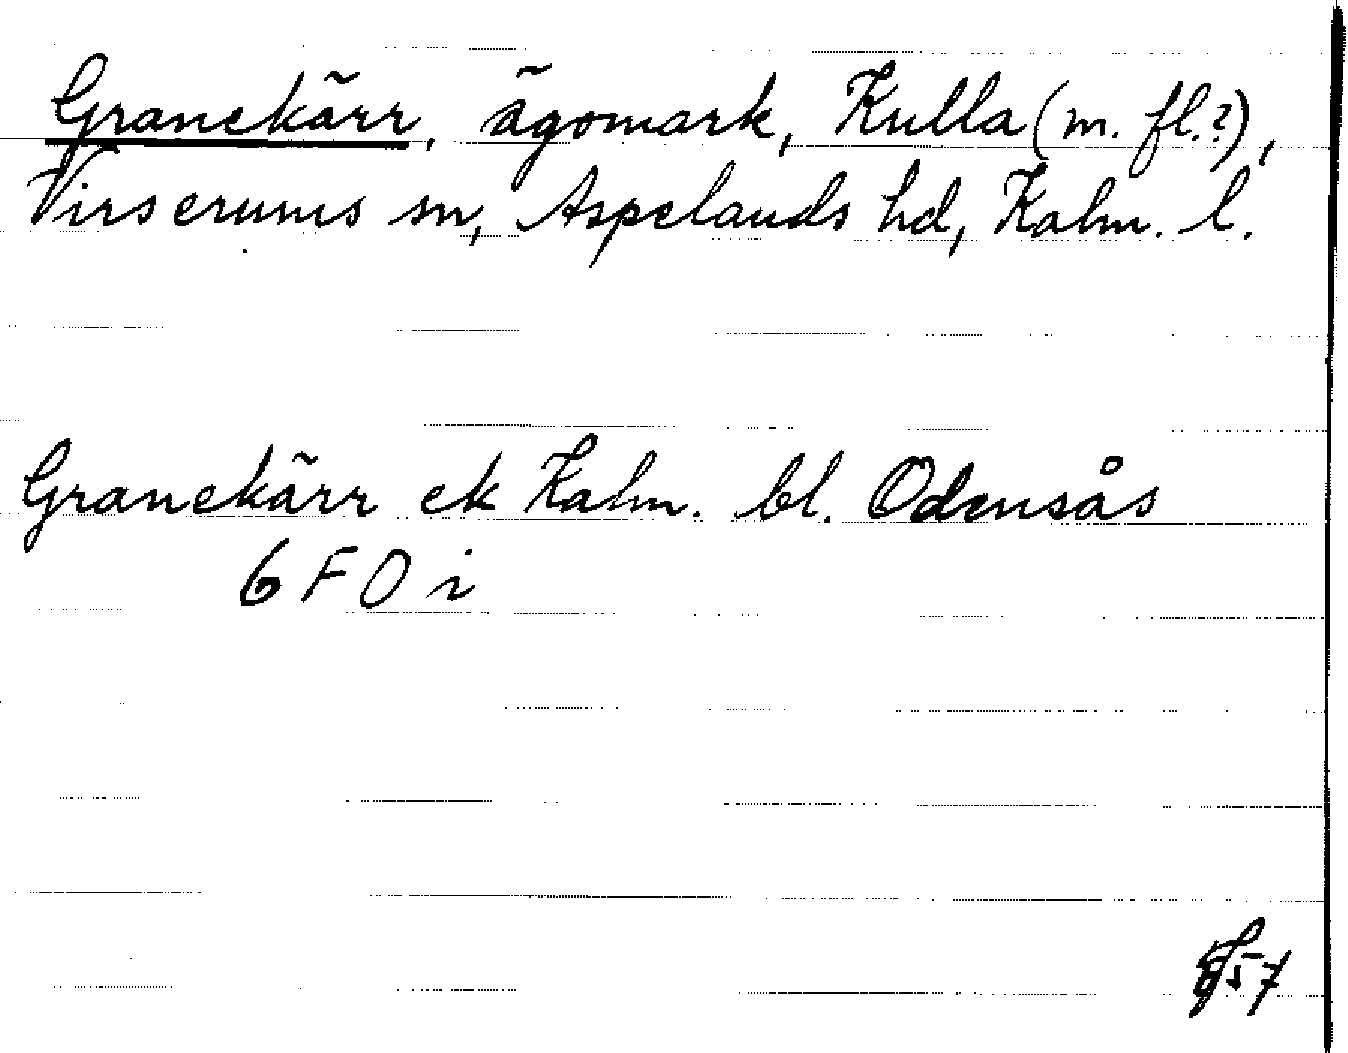 Granekärr, ägomark, Kulla (m. fl.?),
Virserums sn, Aspelands hd, Kalm. l.
Granekärr ek Kalm. bl. Odensås
6 F O i
57